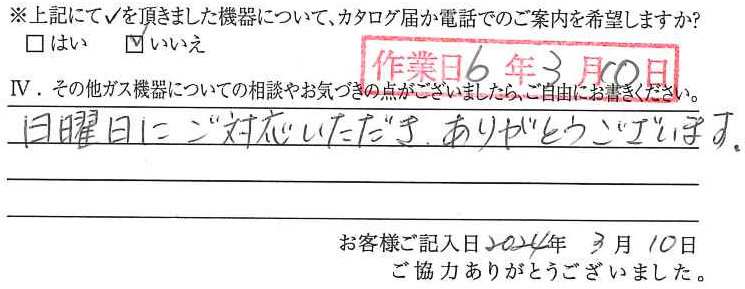 ※上記にて✓を頂きました機器について、カタログ届か電話でのご案内を希望しますか?
□はい ☑いいえ
作業日6年3月10日
Ⅳ．その他ガス機器についての相談やお気づきの点がございましたら、ご自由にお書きください。
日曜日にご対応いただき、ありがとうございます。
お客様ご記入日2024年3月10日
ご協力ありがとうございました。